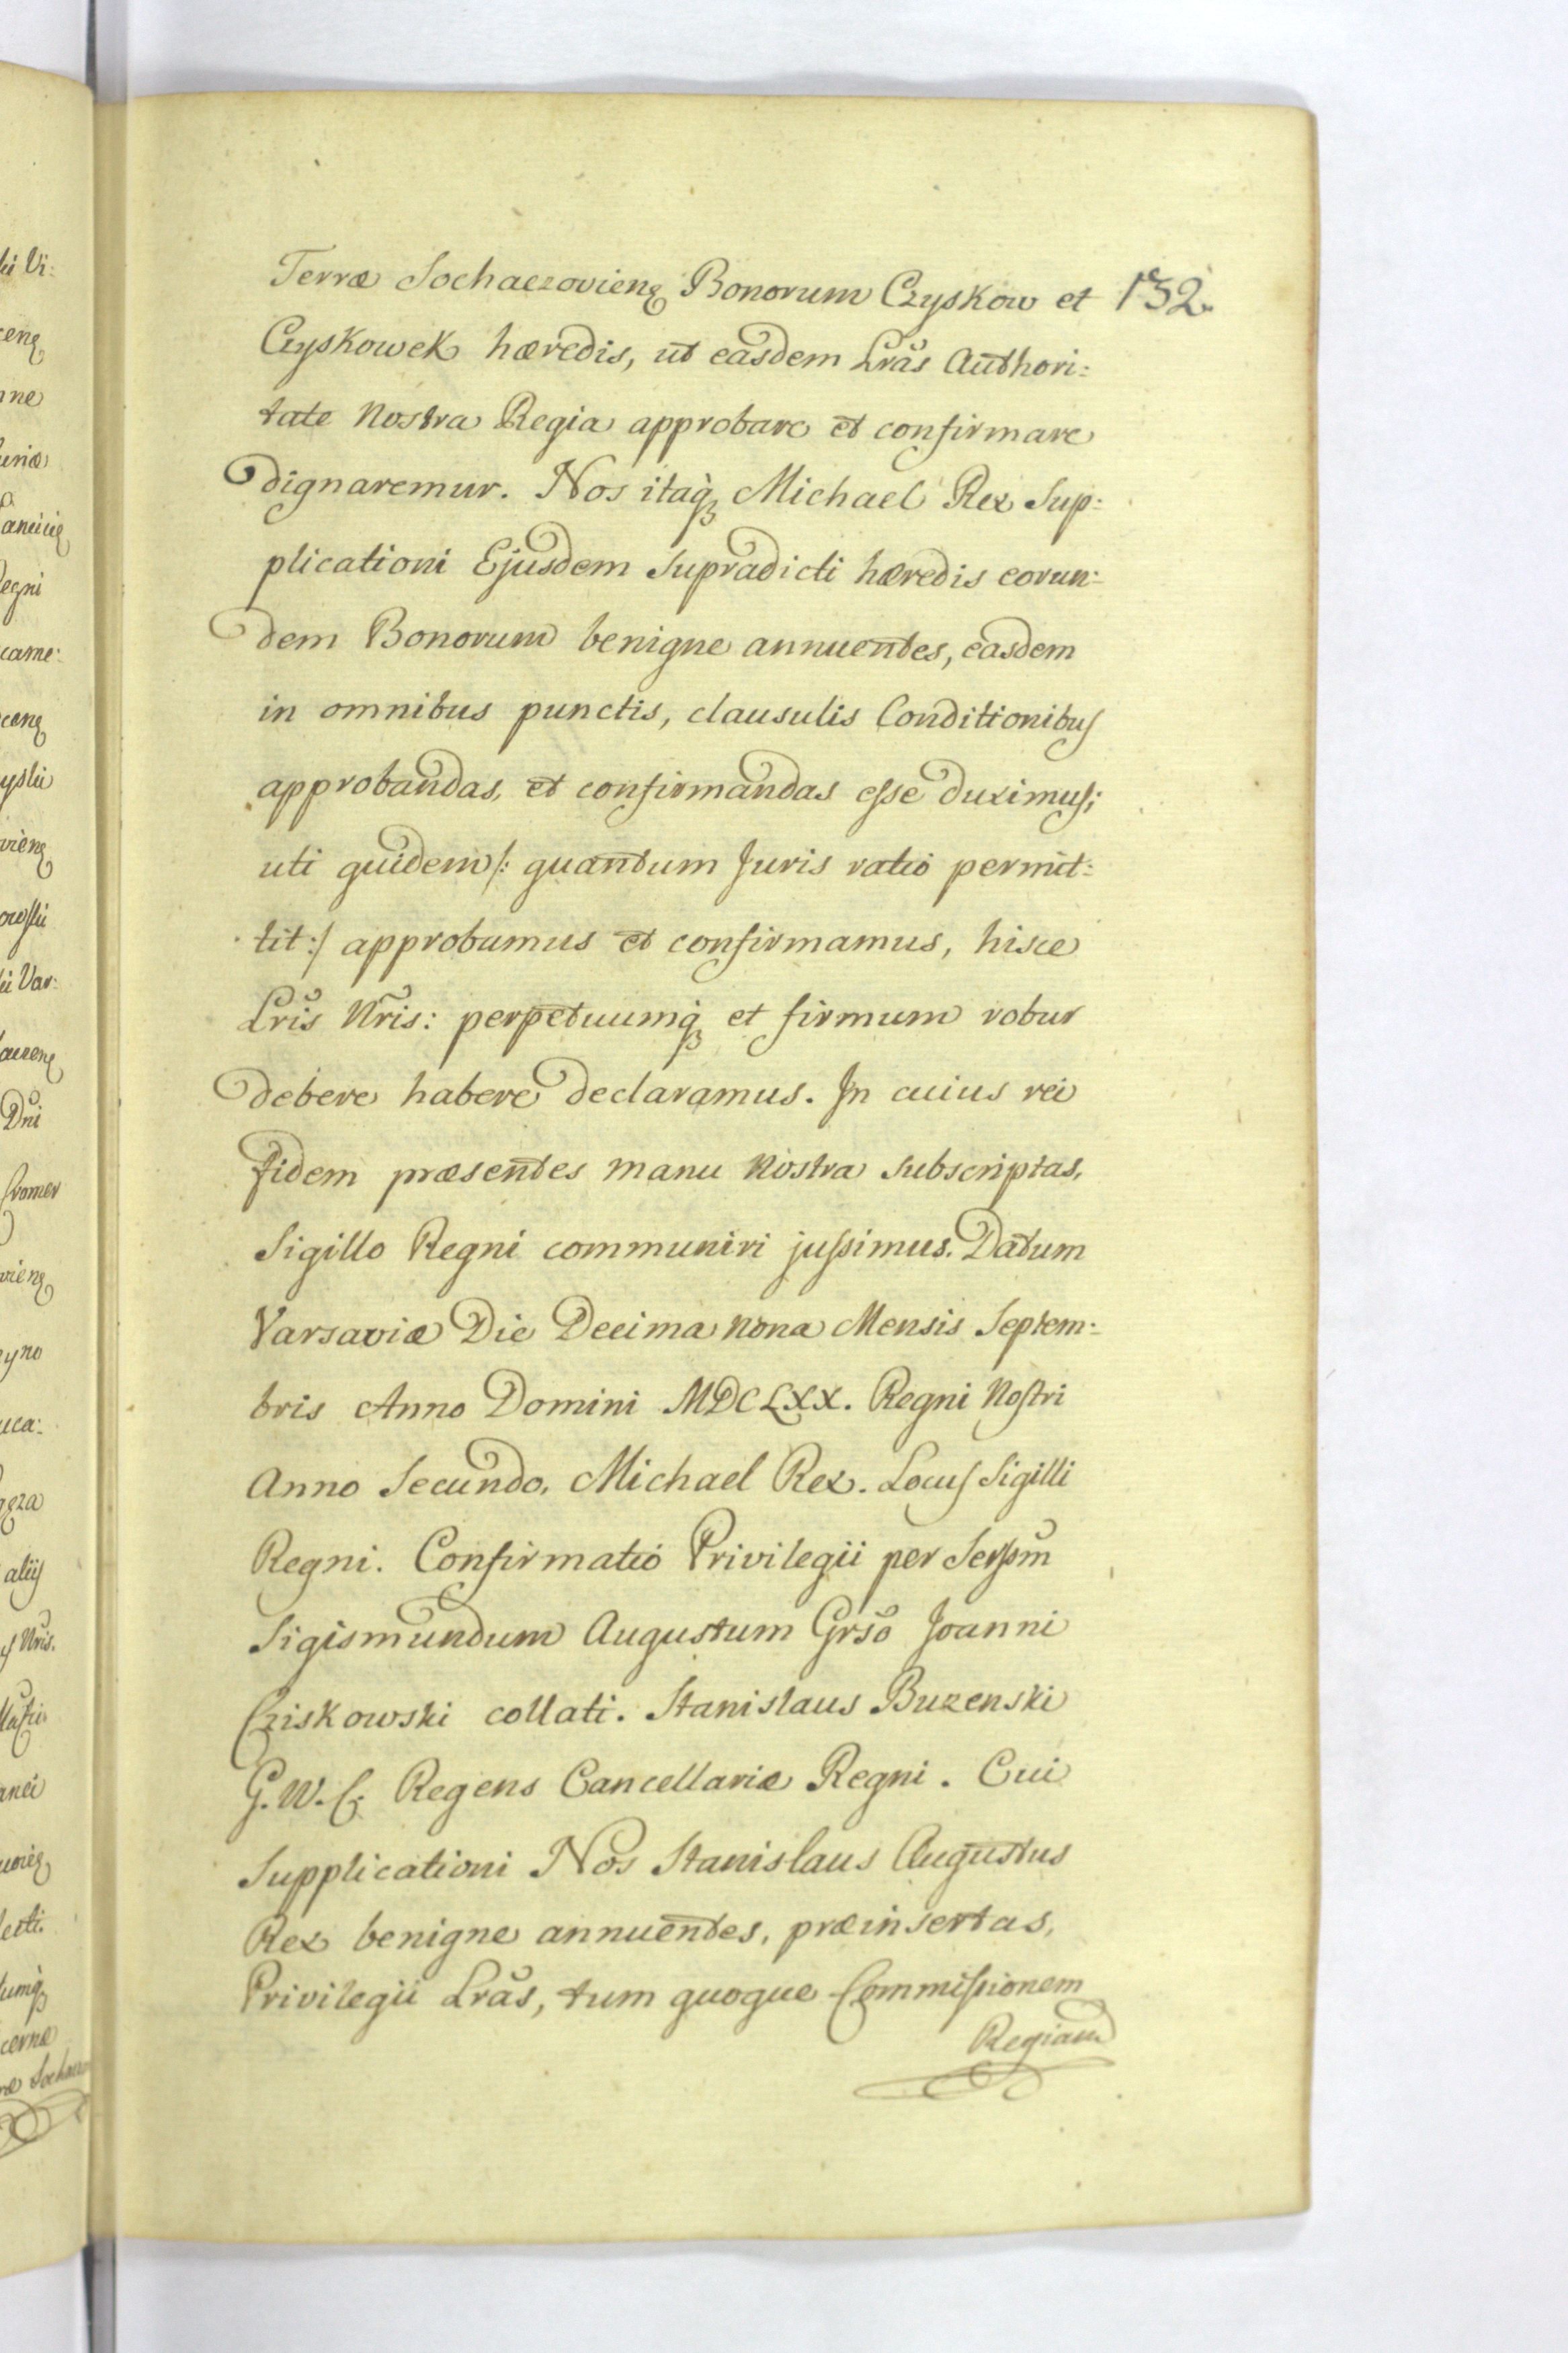 Terræ Sochaczovienę Bonorum Czyskow et 132.
Czyskowek hæredis, ut easdem Lrãs Authori:
tate Nostra Regia approbare et confirmare
dignaremur. Nos itaq̃ʒ Michael Rex Sup:
plicationi Ejusdem Supradicti hæredis eorun:
dem Bonorum benigne annuentes, easdem
in omnibus punctis, clausulis Conditionibus
approbandas, et confirmandas esse duximus;
uti quidem /: quantum Juris ratio permit:
tit :/ approbamus et confirmamus, hisce
Lrĩs Nr̃is: perpetuumq̃ʒ et firmum robur
debere habere declaramus. In cuius rei
fidem præsentes manu Nostra subscriptas,
Sigillo Regni communiri jussimus. Datum
Varsaviæ Die Decima nona Mensis Septem:
bris Anno Domini MDCLXX. Regni Nostri
Anno Secundo. Michael Rex. Locus Sigilli
Regni. Confirmatio Privilegii per Serssm̃
Sigismundum Augustum Grsõ Joanni
Cziskowski collati. Stanislaus Buzenski
G. W. C. Regens Cancellariæ Regni. Cui
Supplicationi Nos Stanislaus Augustus
Rex benigne annuentes, præinsertas,
Privilegii Lrãs, tum quoque Commissionem
Regiam